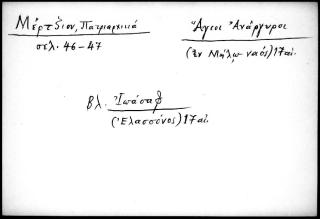 Μέρτζιου, Πατριαρχικά
σελ. 46-47
Ἅγιοι Ἀνάργυροι
(ἐν Μήλῳ ναός) 17 αἰ.
βλ. Ἰωάσαφ
(Ἐλασσόνος) 17 αἰ.